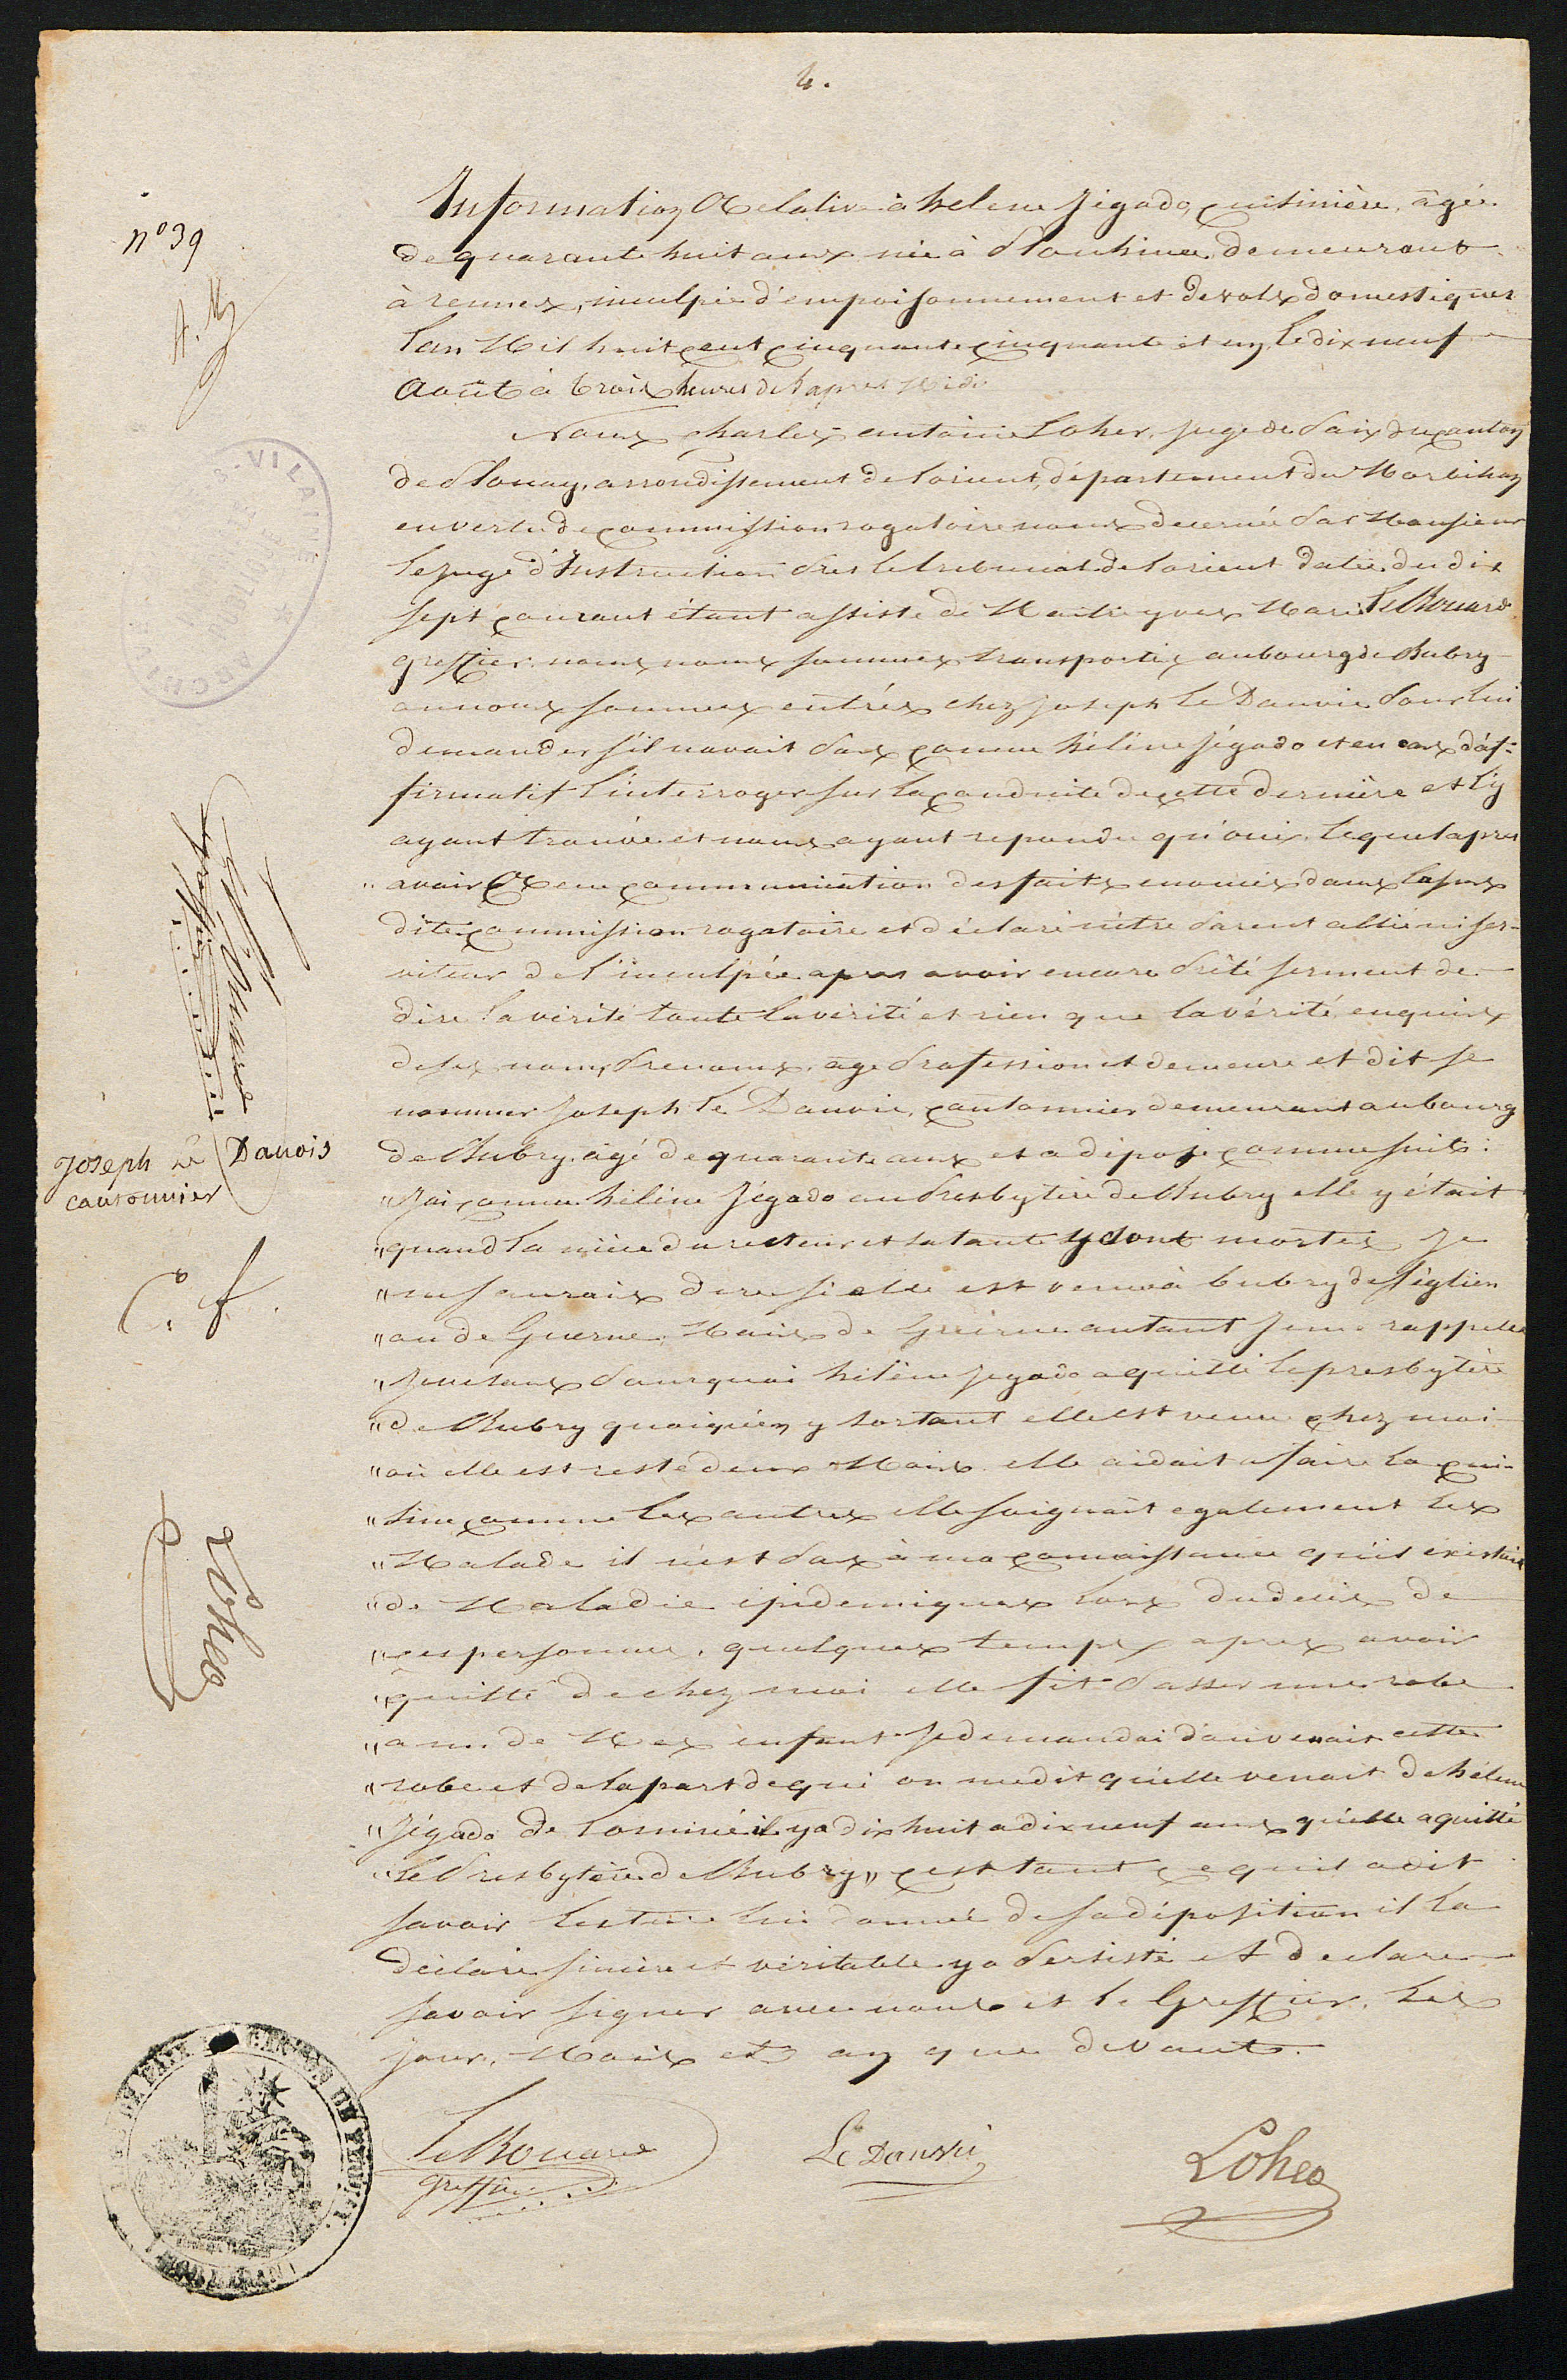 4.
n° 39
Information Relative à helene Jégado, cuisinière, âgée
de quarante huit ans née à Plouhinec demeurant
à rennes, inculpée d'empoisonnement et de vols domestiques
L'an Mil huit cent cinquante cinquante et un, le dix neuf
Août à trois heures de l'apres Midi
Nous charles antoine Loher, juge de Paix du canton
de Plouay, arrondissement de Lorient, département du Morbihan
en vertu de commission rogatoire nous decernée Par Monsieur
le juge d'Instruction Près le tribunal de Lorient datée du dix
sept courant étant assisté de Maitre yves Marie Le Rouard
greffier nous nous sommes transportés au bourg de Bubry
ou nous sommes entrés chez joseph Le Dauvic Pour lui
demander s'il n'avait Pas connu hélène jégado et en cas d'af-
firmatif l'interroger sur la conduite de cette dernière et l'y
ayant trouvé et nous ayant repondu qu'oui, lequel apres
avoir Reçu communication des faits enoncés dans la sus
dite commission rogatoire et déclaré n'être Parent allié ni ser-
viteur de l'inculpée apres avoir encore Prêté serment de
dire la vérité toute la vérité et rien que la vérité enquis
de ses nom, Prenoms, age Profession et demeure et dit se
nommer Joseph Le Dauvic, cantonnier demeurant au bourg
de Bubry, âgé de quarante ans et a déposé comme suit :
Joseph Le Danois
cantonnier
"J'ai connu hélène Jégado au Presbytère de Bubry elle y était
"quand la nièce du recteur et sa tante y sont mortes je
"ne saurais dire si elle est venue à bubry de Séglien
"ou de Guerne. Mais de Guerne autant je me rappelle
"je ne sais Pourquoi hélène jegado a quitté le presbytère
"de Bubry quoiqu'en y sortant elle est venue chez moi
"où elle est resté deux Mois elle aidait a faire la cui-
"sine comme les autres elle soignait egalement les
"Malade il n'est Pas à ma connaissance qu'il existait
"de Maladie épidemiques lors du decès de
"ces personnes. quelques temps apres avoir
"quitté de chez moi elle fit Passer une robe
"a un de Mes enfant je demandai d'où venait cette
"robe et de la part de qui on me dit qu'elle venait de hélène
"Jégado de Lominé il y a dix huit a dix neuf ans qu'elle a quitté
"le Presbytère de Bubry" c'est tout ce qu'il a dit
savoir lecture lui donnée de sa déposition il la
déclare sincère et véritable y a Persisté et declare
savoir signer avec nous et le Greffier. Les
jour, Mois et an que devant.
Le Rouard
greffier
Le Danvic
Loher
Loher